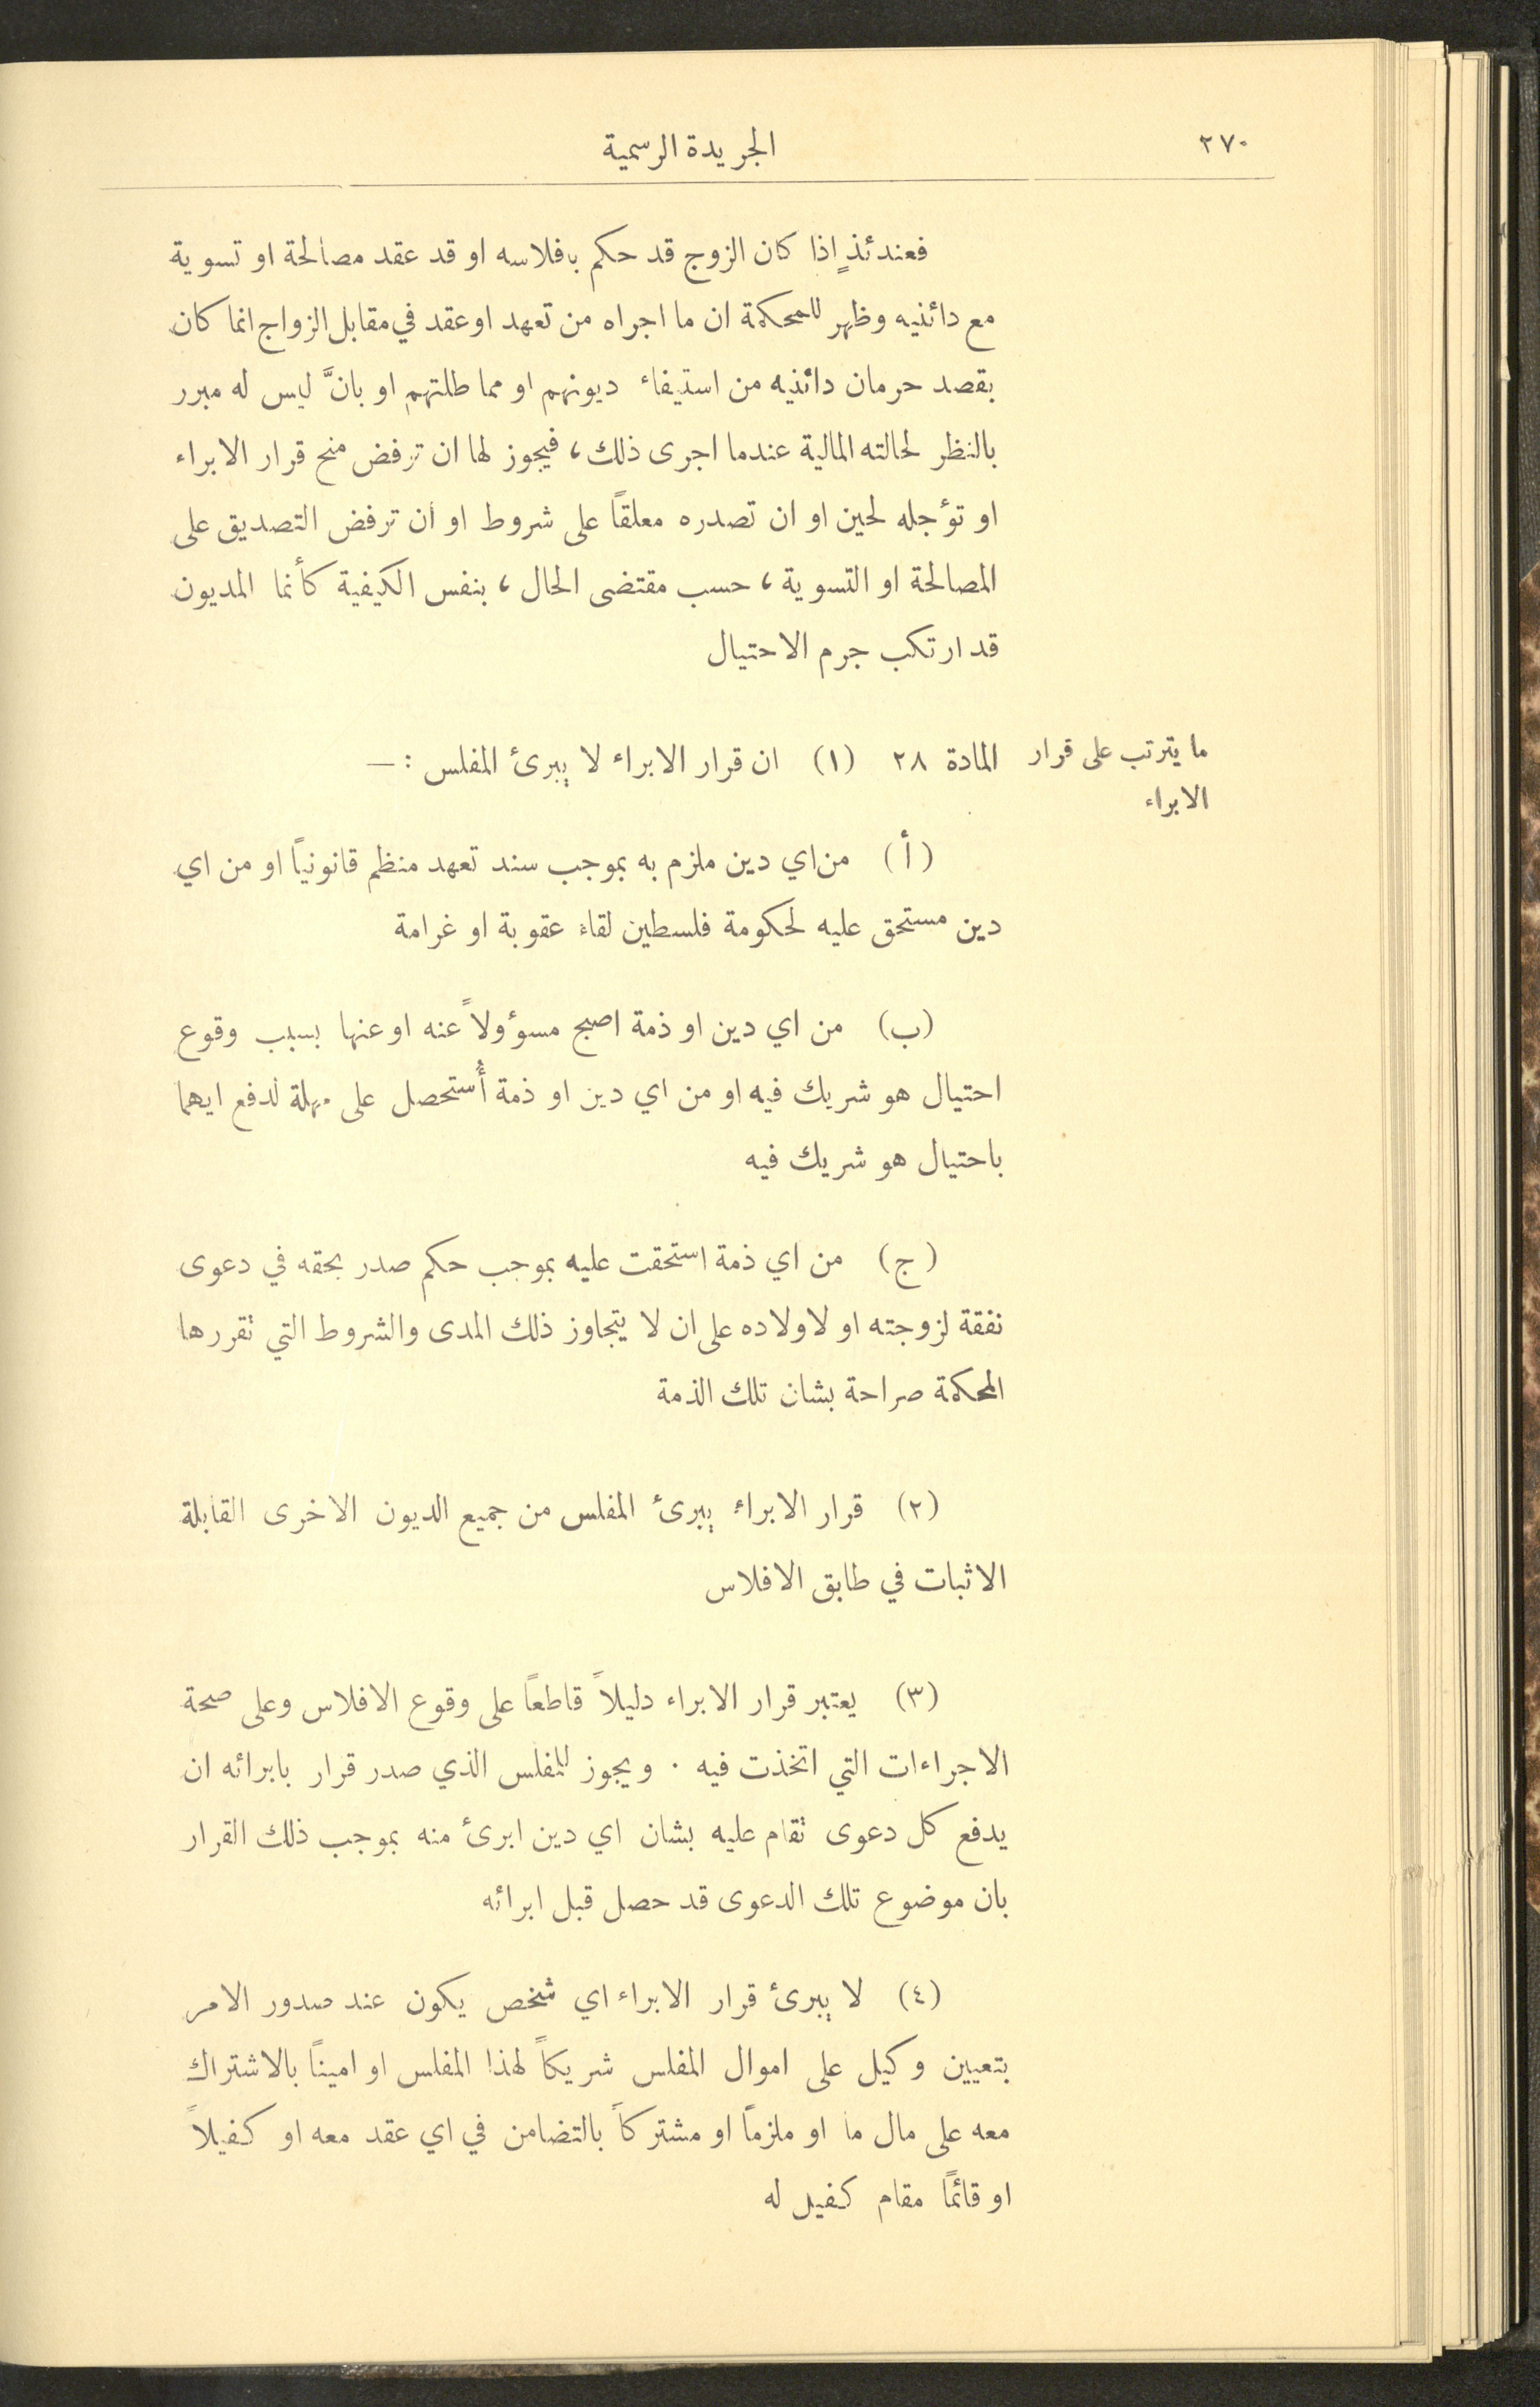 ٢٧٠
الجريدة الرسمية
فعندئذٍ اذا كان الزوج قد حكم بافلاسه او قد عقد مصالحة او تسوية
مع دائنيه وظهر للمحكمة ان ما اجراه من تعهد او عقد في مقابل الزواج انما كان
بقصد حرمان دائنيه من استيفاء ديونهم او مماطلتهم او بانَّ ليس له مبرر
بالنظر لحالته المالية عندما اجرى ذلك، فيجوز لها ان ترفض منح قرار الابراء
او تؤجله لحين او ان تصدره معلقاً على شروط او أن ترفض التصديق على
المصالحة او التسوية، حسب مقتضى الحال، بنفس الكيفية كأنما المديون
قد ارتكب جرم الاحتيال
ما يترتب على قرار
الابراء
المادة ٢٨ (١) ان قرار الابراء لا يبرئ المفلس : —
(أ) من اي دين ملزم به بموجب سند تعهد منظم قانونياً او من اي
دين مستحق عليه لحكومة فلسطين لقاء عقوبة او غرامة
(ب) من اي دين او ذمة اصبح مسؤولاً عنه او عنها بسبب وقوع
احتيال هو شريك فيه او من اي دين او ذمة أُستحصل على مهلة لدفع ايهما
باحتيال هو شريك فيه
(ج) من اي ذمة استحقت عليه بموجب حكم صدر بحقه في دعوى
نفقة لزوجته او لاولاده على ان لا يتجاوز ذلك المدى والشروط التي تقررها
المحكمة صراحة بشان تلك الذمة
(٢) قرار الابراء يبرئ المفلس من جميع الديون الاخرى القابلة
الاثبات في طابق الافلاس
(٣) يعتبر قرار الابراء دليلاً قاطعاً على وقوع الافلاس وعلى صحة
الاجراءات التي اتخذت فيه . ويجوز للمفلس الذي صدر قرار بابرائه ان
يدفع كل دعوى تقام عليه بشان اي دين ابرئ منه بموجب ذلك القرار
بان موضوع تلك الدعوى قد حصل قبل ابرائه
(٤) لا يبرئ قرار الابراء اي شخص يكون عند صدور الامر
بتعيين وكيل على اموال المفلس شريكاً لهذا المفلس او اميناً بالاشتراك
معه على مال ما او ملزماً او مشتركاً بالتضامن في اي عقد معه او كفيلاً
او قائماً مقام كفيل له